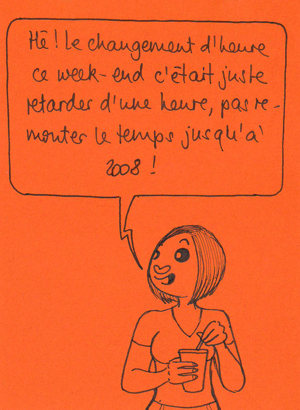 Hé ! Le changement d'heure
ce week-end c'était juste
retarder d'une heure, pas re-
monter le temps jusqu'à
2008 !